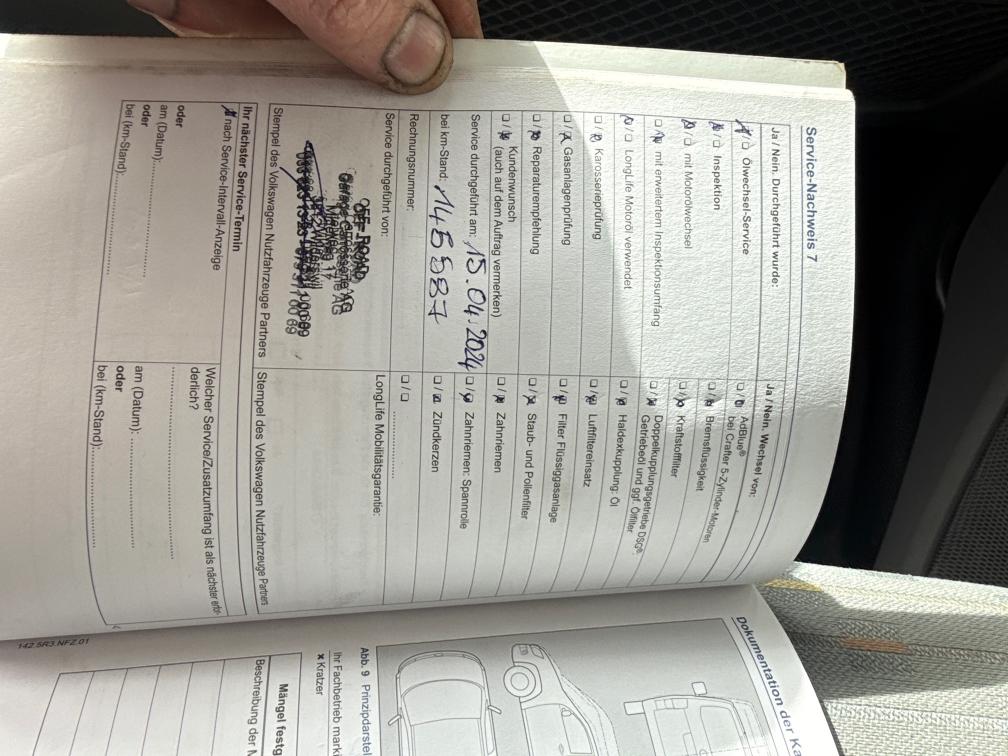 Service-Nachweis 7
Ja / Nein. Durchgeführt wurde:
☒/☐ Ölwechsel-Service
☒/☐ Inspektion
☒/☐ mit Motorölwechsel
☐/☒ mit erweitertem Inspektionsumfang
☒/☐ LongLife Motoröl verwendet
☐/☒ Karosserieprüfung
☐/☒ Gasanlagenprüfung
☐/☒ Reparaturempfehlung
☐/☒ Kundenwunsch
(auch auf dem Auftrag vermerken)
Service durchgeführt am: 15.04.2024
bei km-Stand: 145587
Rechnungsnummer:
Service durchgeführt von:
OFF ROAD
AG
Stempel des Volkswagen Nutzfahrzeuge Partners
Ja / Nein. Wechsel von:
☐/☒ AdBlue®
bei Crafter 5-Zylinder-Motoren
☐/☒ Bremsflüssigkeit
☐/☒ Kraftstofffilter
☐/☒ Doppelkupplungsgetriebe DSG®:
Getriebeöl und ggf. Ölfilter
☐/☒ Haldexkupplung: Öl
☐/☒ Luftfiltereinsatz
☐/☒ Filter Flüssiggasanlage
☐/☒ Staub- und Pollenfilter
☐/☒ Zahnriemen
☐/☒ Zahnriemen: Spannrolle
☐/☒ Zündkerzen
☐/☐ ....................
LongLife Mobilitätsgarantie:
Stempel des Volkswagen Nutzfahrzeuge Partners
Ihr nächster Service-Termin
☒ nach Service-Intervall-Anzeige
oder
am (Datum):....................
oder
bei (km-Stand):....................
Welcher Service/Zusatzumfang ist als nächster erfor-
derlich?
....................
am (Datum): ....................
oder
bei (km-Stand):....................
142.5R3.NFZ.01
Dokumentation der Ka
Abb. 9 Prinzipdarstel
Ihr Fachbetrieb marki
× Kratzer
Mängel festg
Beschreibung der M